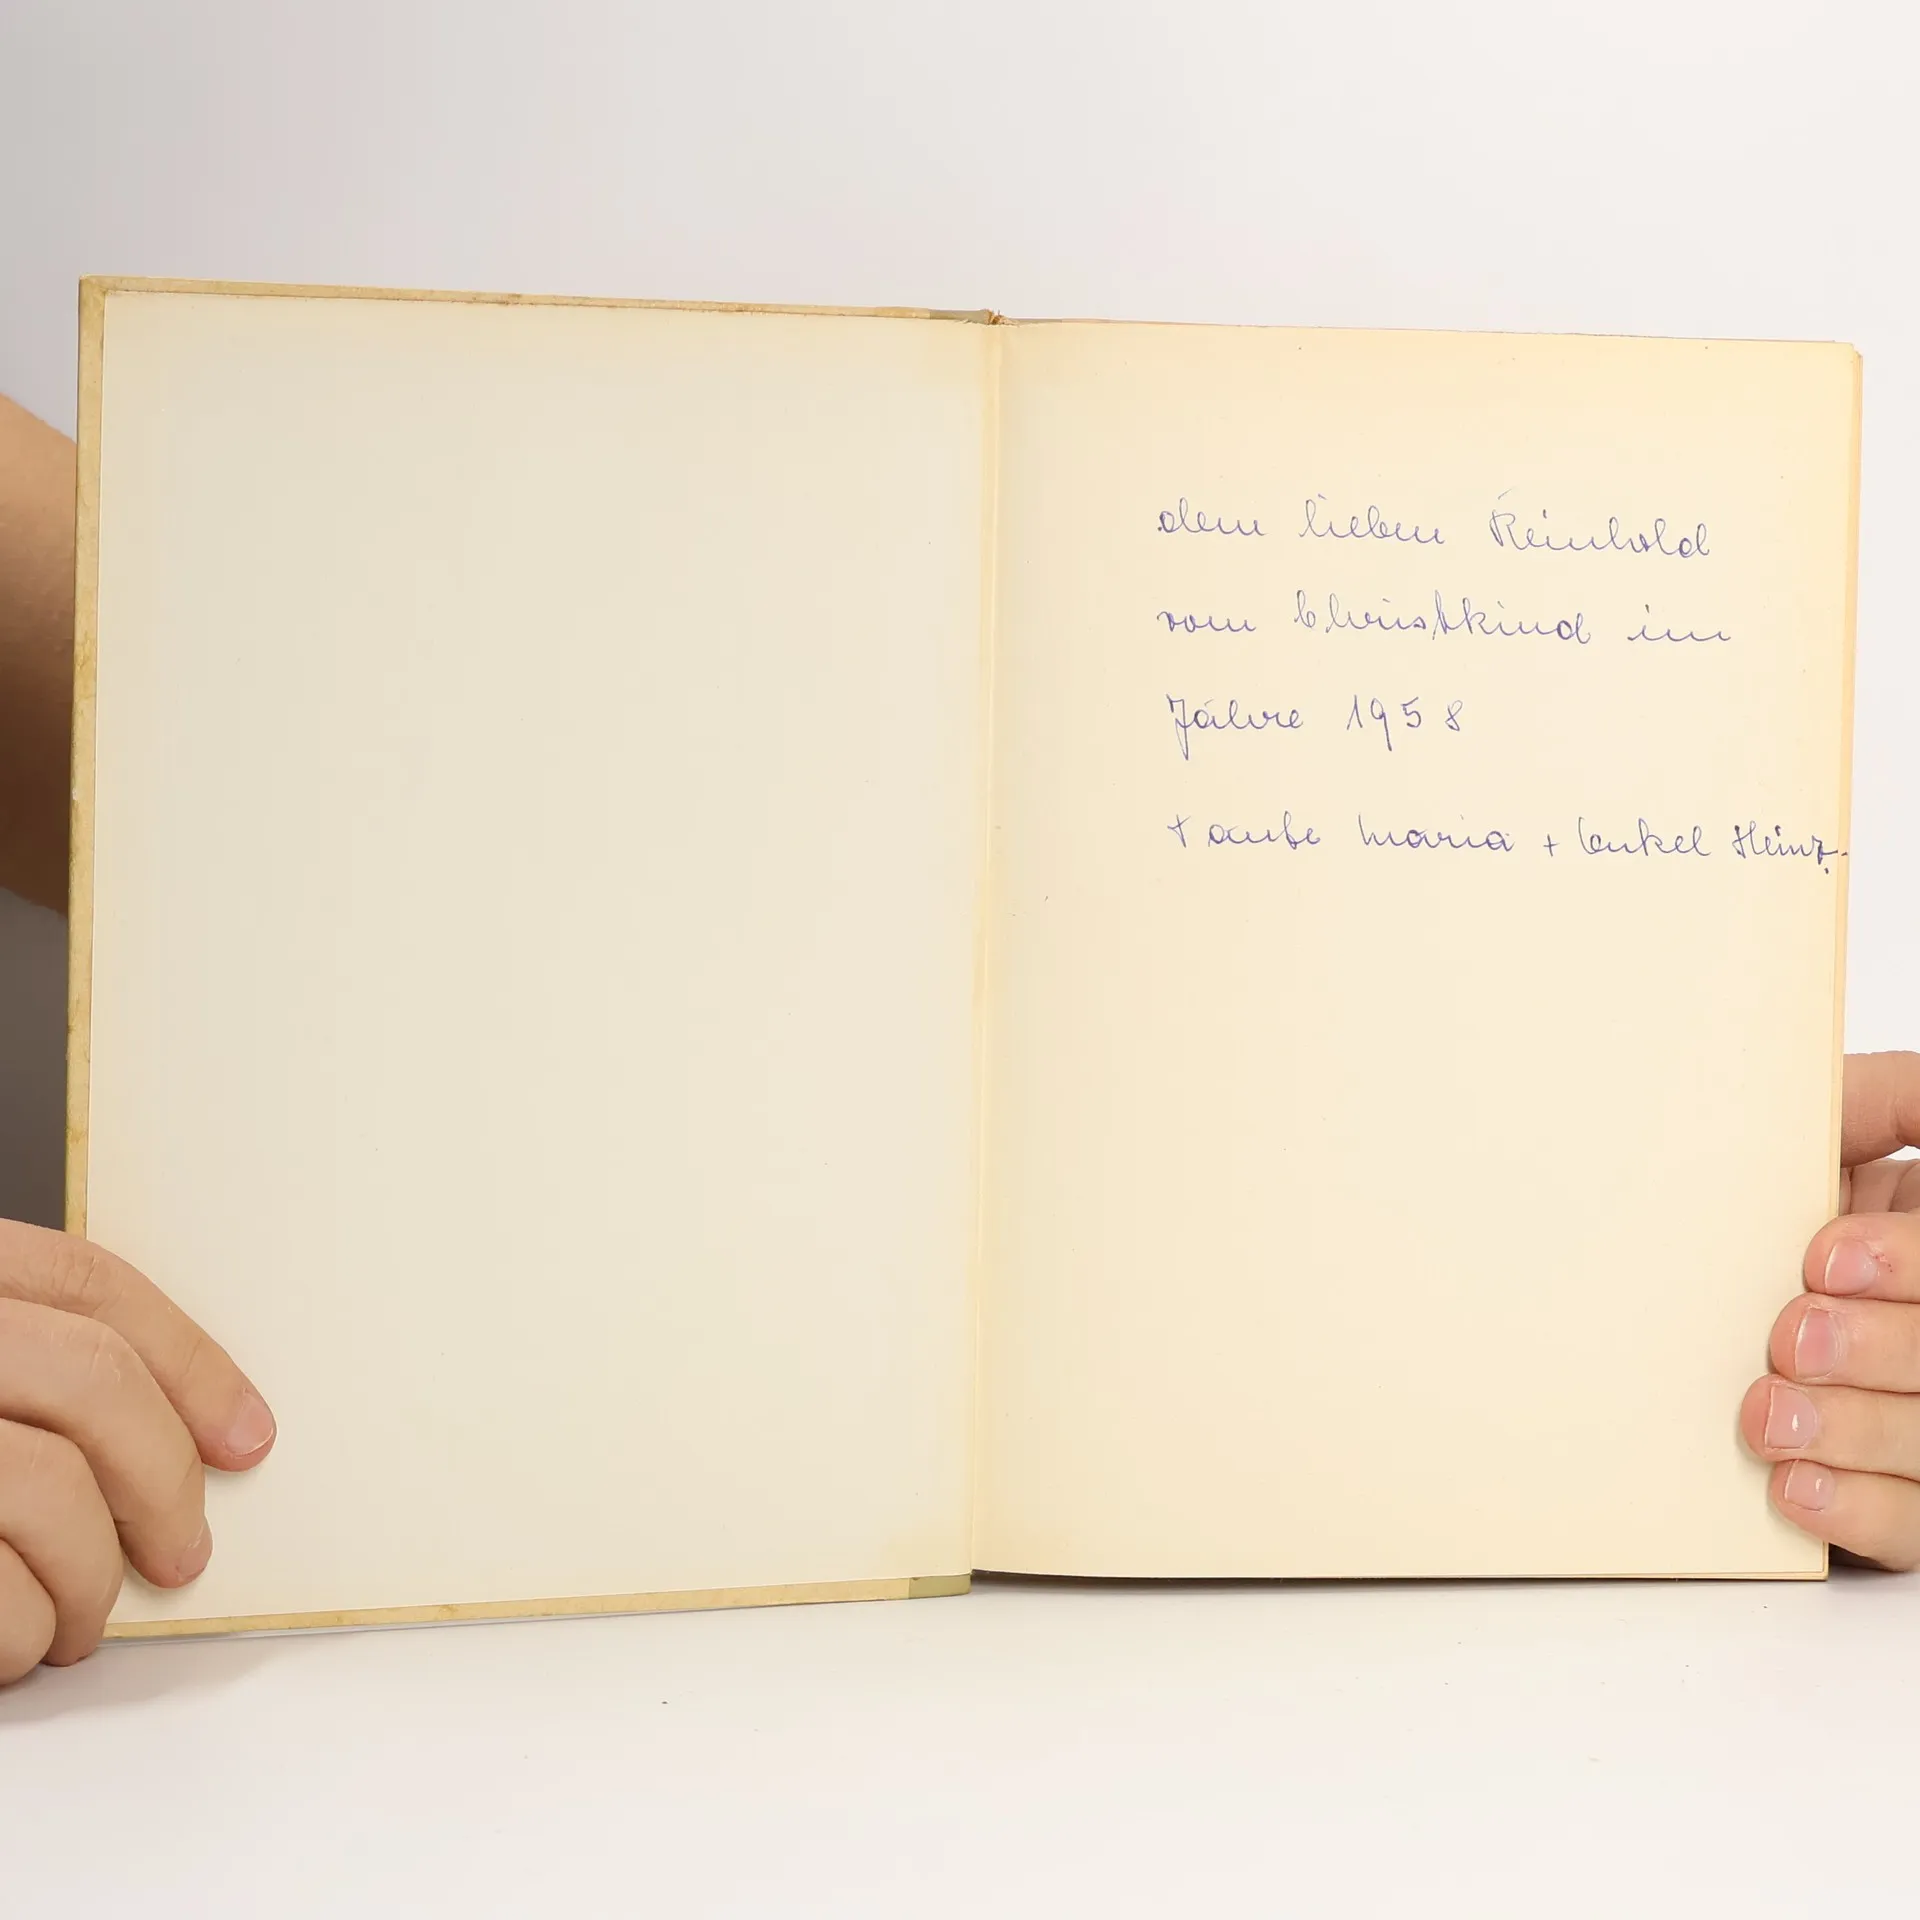 dem lieben Reinhold
vom Christkind im
Jahre 1958
tante Maria + Onkel Heinz.